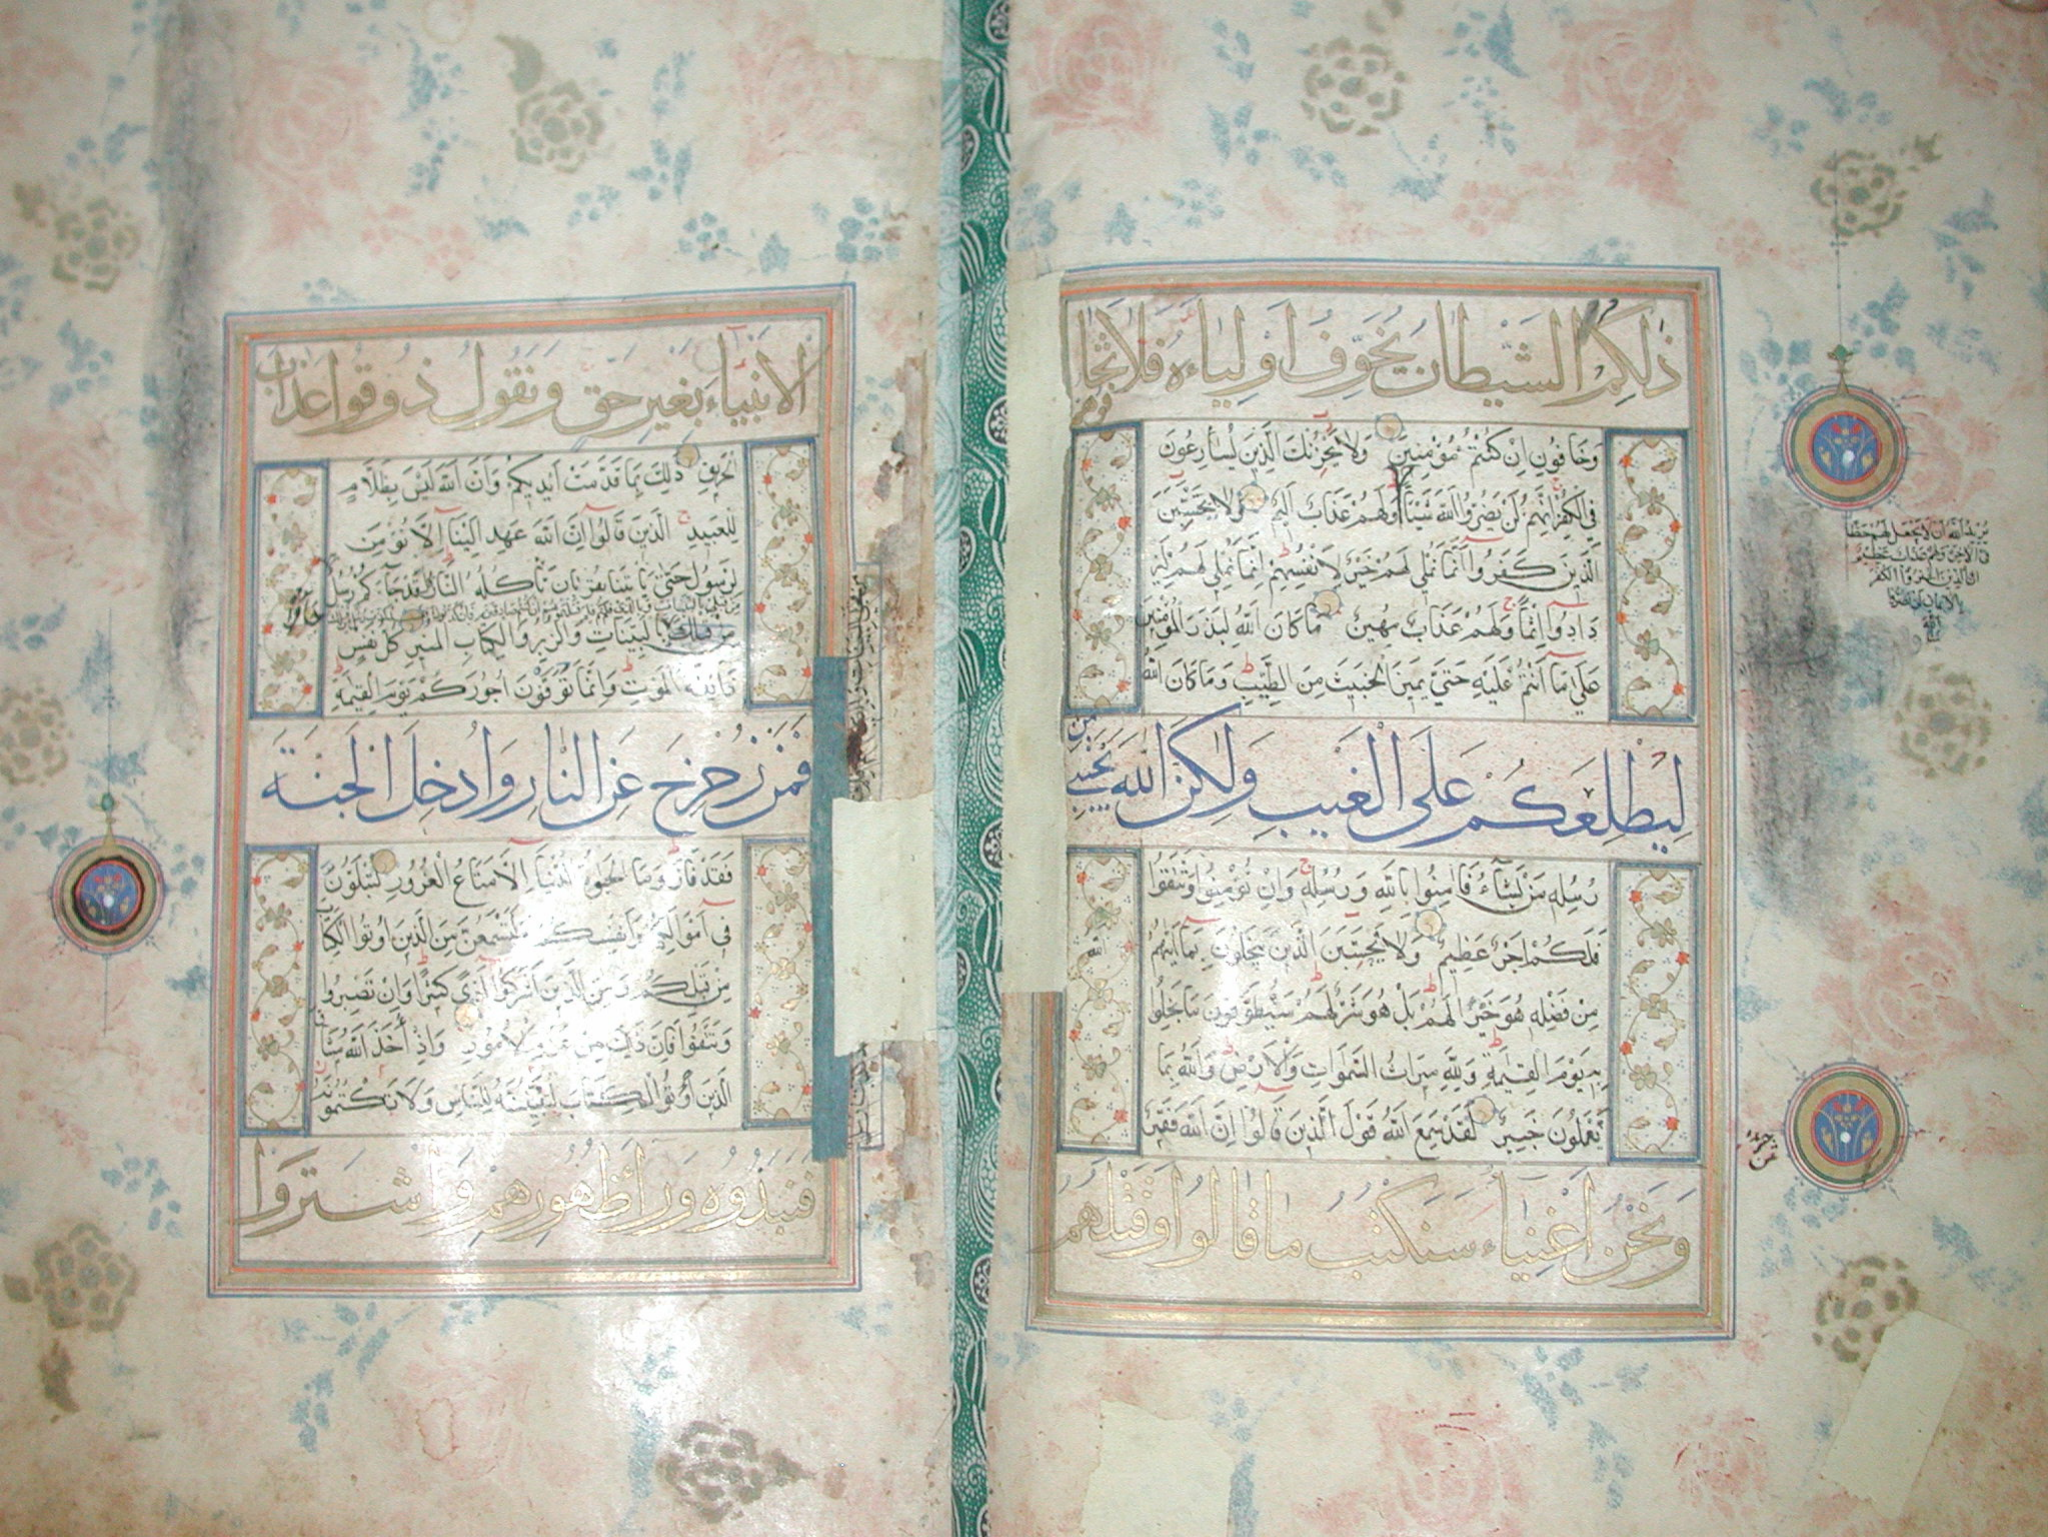 ذلكم الشيطان يخوف اولياءه فلا تخافوهم
وخافون ان كنتم مؤمنين ولا يحزنك الذين يسارعون
في الكفر انهم لن يضروا الله شيئا ولهم عذاب اليم ولا يحسبن
الذين كفروا انما نملي لهم خير لانفسهم انما نملي لهم ليز
دادوا اثما ولهم عذاب مهين ما كان الله ليذر المؤمنين
على ما انتم عليه حتى يميز الخبيث من الطيب وما كان الله
ليطلعكم على الغيب ولكن الله يجتبي من
رسله من يشاء فامنوا بالله ورسله وان تؤمنوا وتتقوا
فلكم اجر عظيم ولا يحسبن الذين يبخلون بما اتيهم الله
من فضله هو خيرا لهم بل هو شر لهم سيطوقون ما بخلوا
به يوم القيمة ولله ميراث السموات والارض والله بما
تعملون خبير لقد سمع الله قول الذين قالوا ان الله فقير
ونحن اغنياء سنكتب ما قالوا وقتلهم
يريد الله ان لا يجعل لهم حظا
في الاخرة ولهم عذاب عظيم
ان الذين اشتروا الكفر
بالايمان لن يضروا
الله
شيئا
الانبياء بغير حق ونقول ذوقوا عذاب
الحريق ذلك بما قدمت ايديكم وان الله ليس بظلام
للعبيد الذين قالوا ان الله عهد الينا الا نؤمن
لرسول حتى ياتينا بقربان تاكله النار قد جاءكم رسل
من قبلي بالبينات وبالذي قلتم فلم قتلتموهم ان كنتم صادقين فان كذبوك فقد كذب رسل من قبلك
من قبلك بالبينات والزبر والكتاب المنير كل نفس
ذائقة الموت وانما توفون اجوركم يوم القيمة
فمن زحزح عن النار وادخل الجنة
فقد فاز وما الحيوة الدنيا الا متاع الغرور لتبلون
في اموالكم وانفسكم ولتسمعن من الذين اوتوا الكتاب
من قبلكم ومن الذين اشركوا اذى كثيرا وان تصبروا
وتتقوا فان ذلك من عزم الامور واذ اخذ الله ميثاق
الذين اوتوا الكتاب لتبيننه للناس ولا تكتمونه
فنبذوه وراء ظهورهم واشتروا